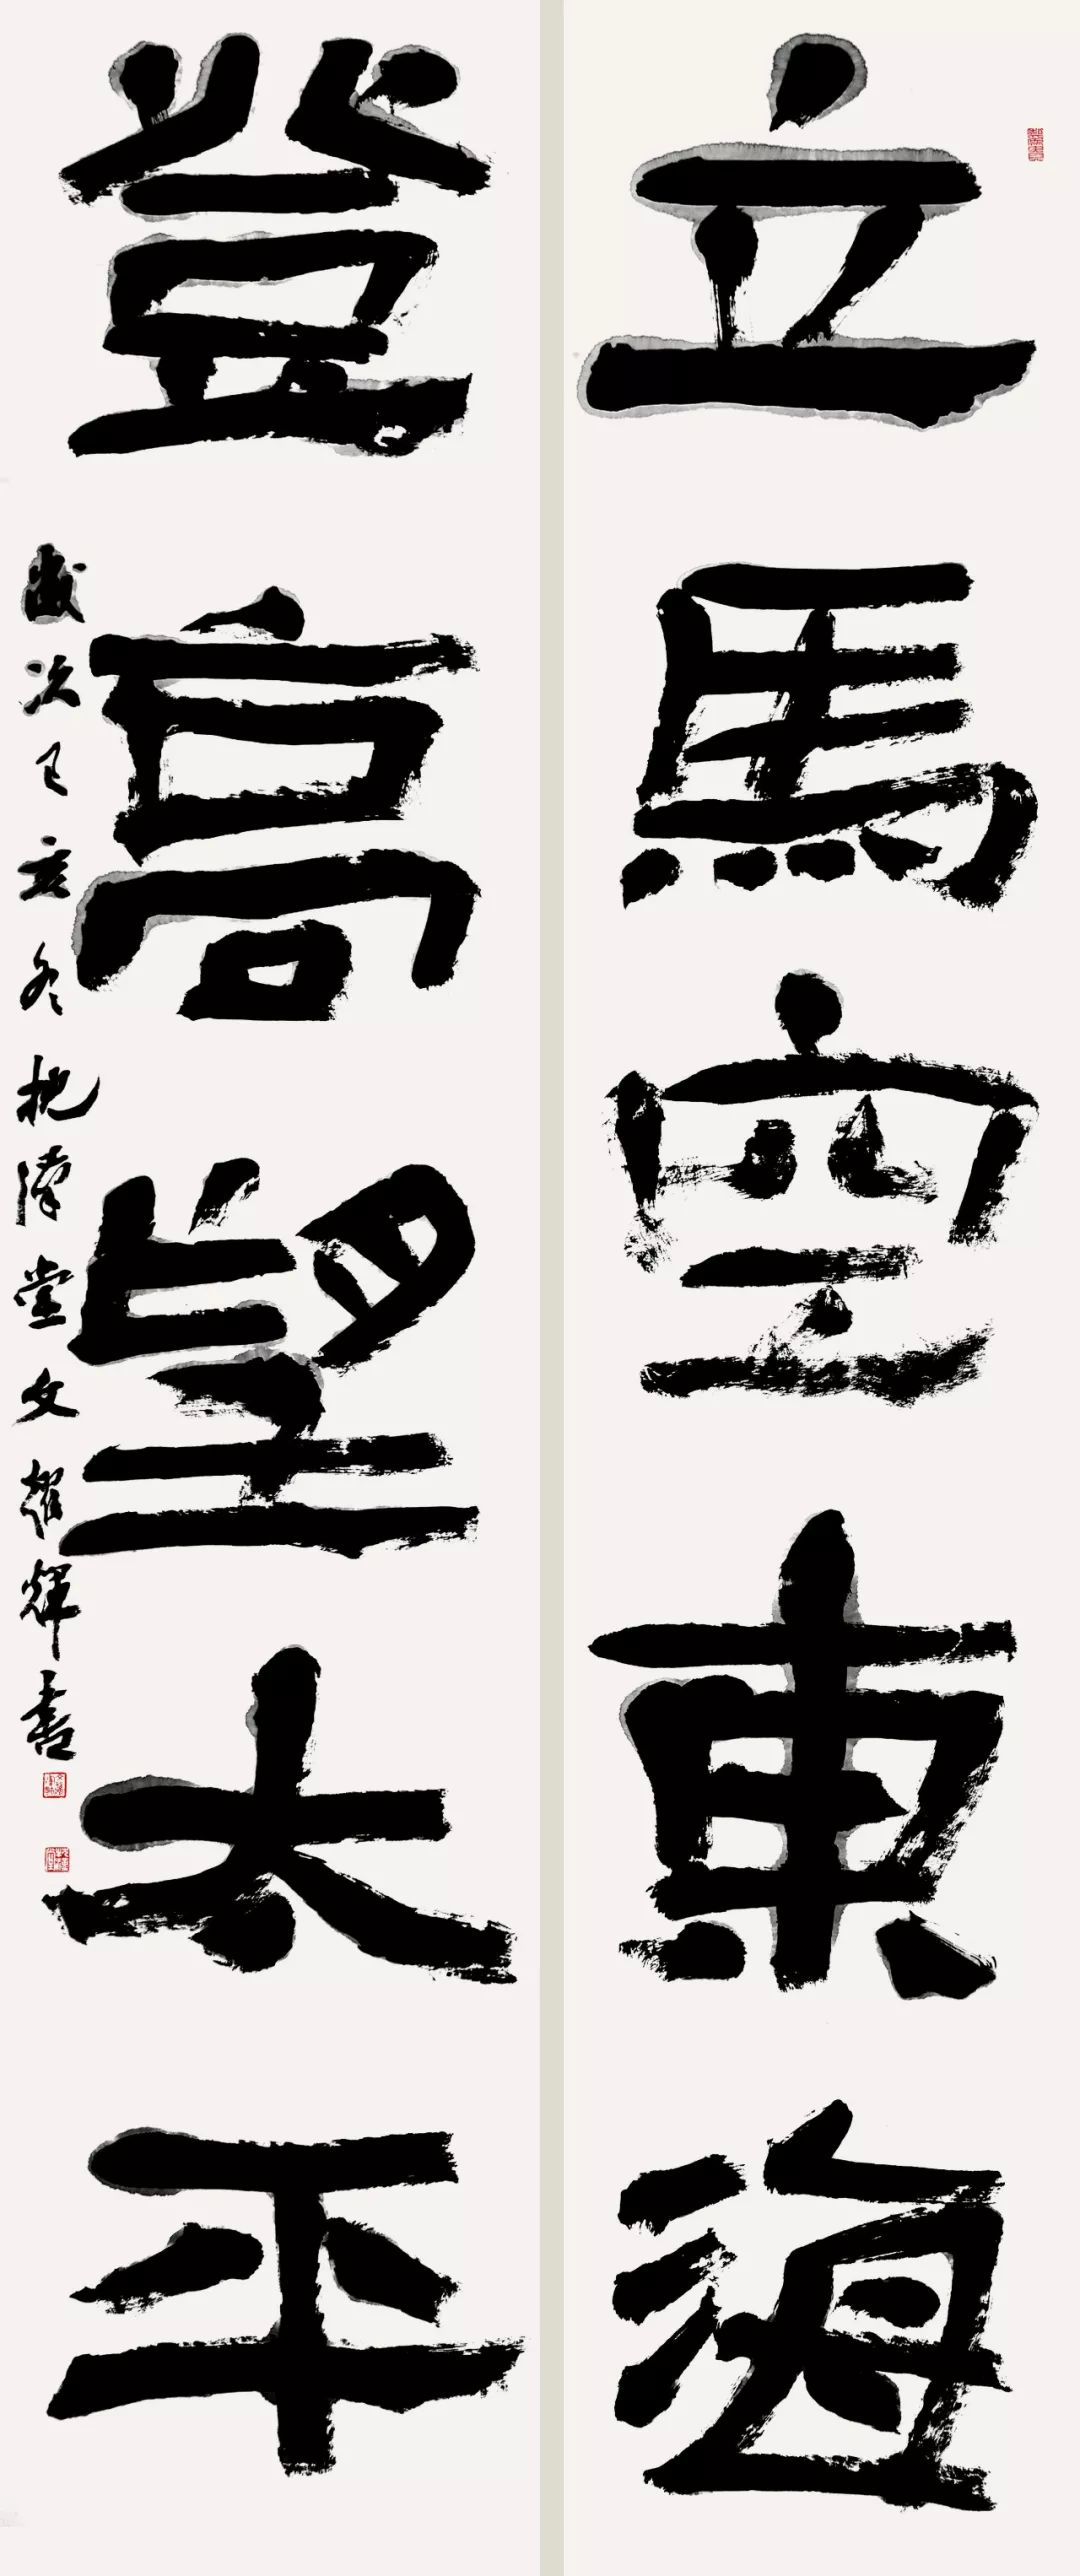 立馬空東海
登高望太平
歲次己亥冬抱陣堂文耀輝書